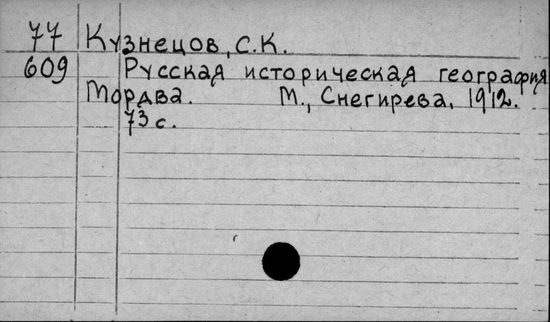 77 Кузнецов, С.К.
609 Русская историческая география
Мордва. М., Снегирева, 1912.
73 с.